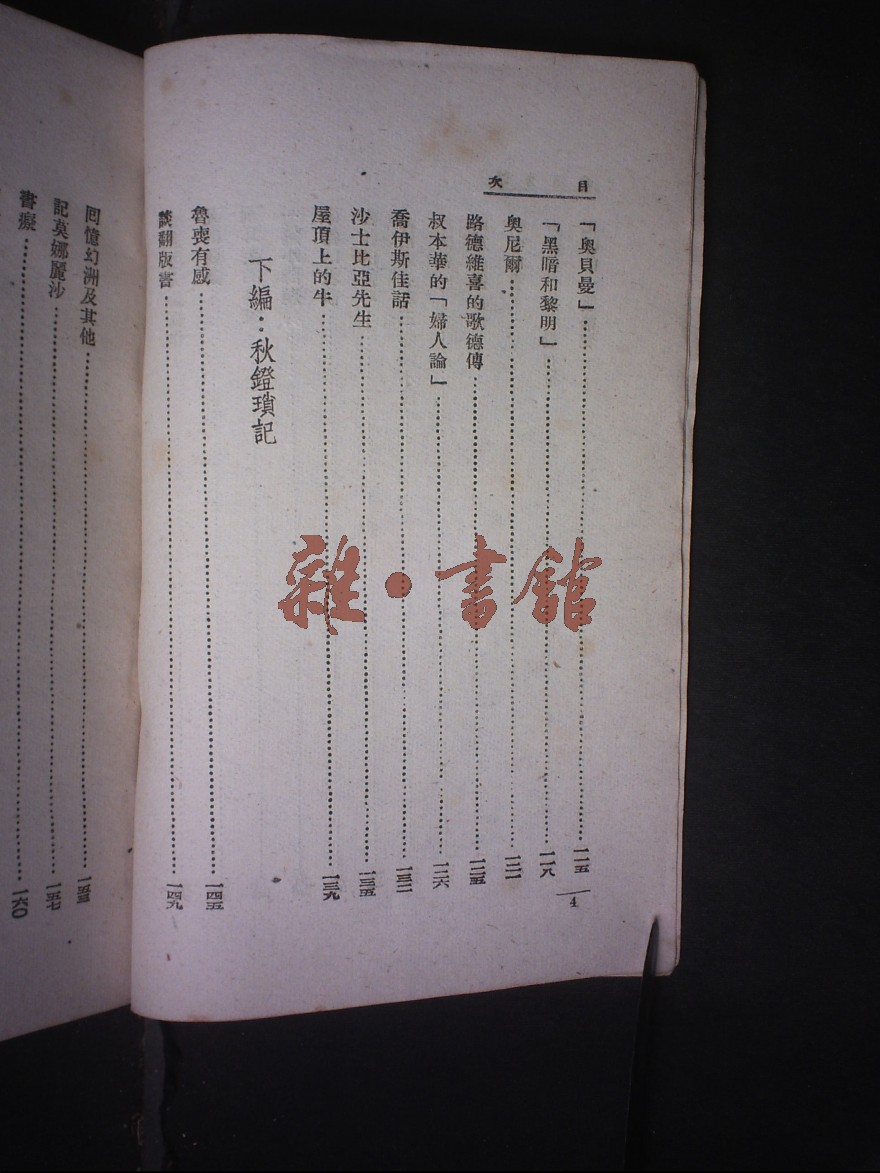 目次
「奧貝曼」……一一五
「黑暗和黎明」……一一八
奧尼爾……一二二
路德維喜的歌德傳……一二五
叔本華的「婦人論」……一二六
喬伊斯佳話……一三二
沙士比亞先生……一三五
屋頂上的牛……一三九
下編：秋鐙瑣記
魯喪有感……一四五
談翻版書……一四九
4
回憶幻洲及其他……一五三
記莫娜麗沙……一五七
書癡……一六〇
雜·書館